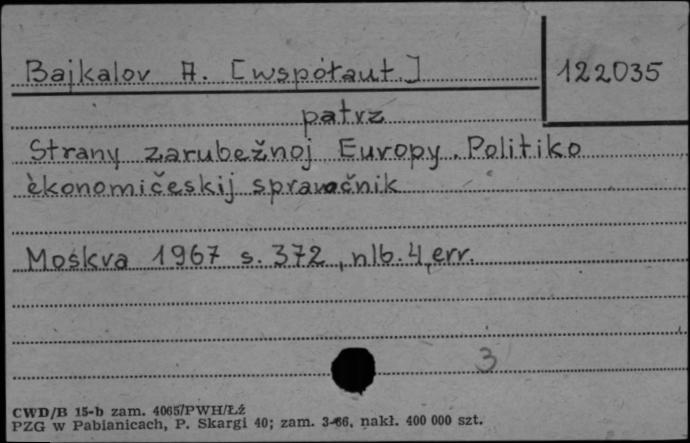 Bajkalov A. [współaut.]
122035
patrz
Strany zarubežnoj Europy. Politiko
èkonomičeskij spravočnik
Moskva 1967 s. 372, nlb. 4, err.
3
CWD/B 15-b zam. 4065/PWH/Łź
PZG w Pabianicach, P. Skargi 40; zam. 3-66, nakł. 400 000 szt.